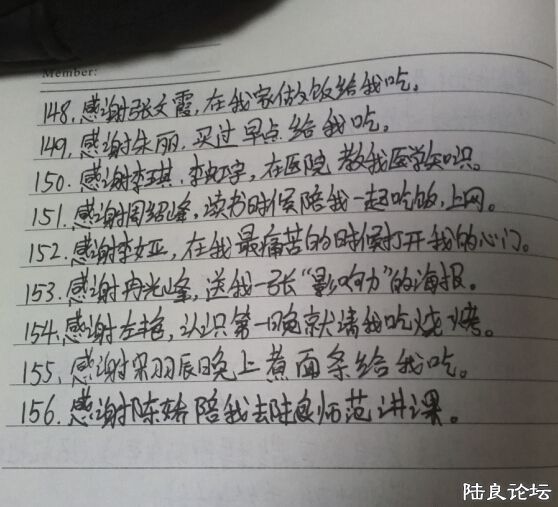 Member:
148. 感谢张文霞,在我家做饭给我吃。
149. 感谢朱丽,买过早点给我吃。
150. 感谢李琪、李虹宇,在医院教我医学知识。
151. 感谢周绍峰,读书时侯陪我一起吃饭,上网。
152. 感谢李女亚,在我最痛苦的时候打开我的心门。
153. 感谢冉光峰,送我一张“影响力”的海报。
154. 感谢左艳,认识第一晚就请我吃烧烤。
155. 感谢宋羽辰晚上煮面条给我吃。
156. 感谢陈娇陪我去陆良师范讲课。
陆良论坛